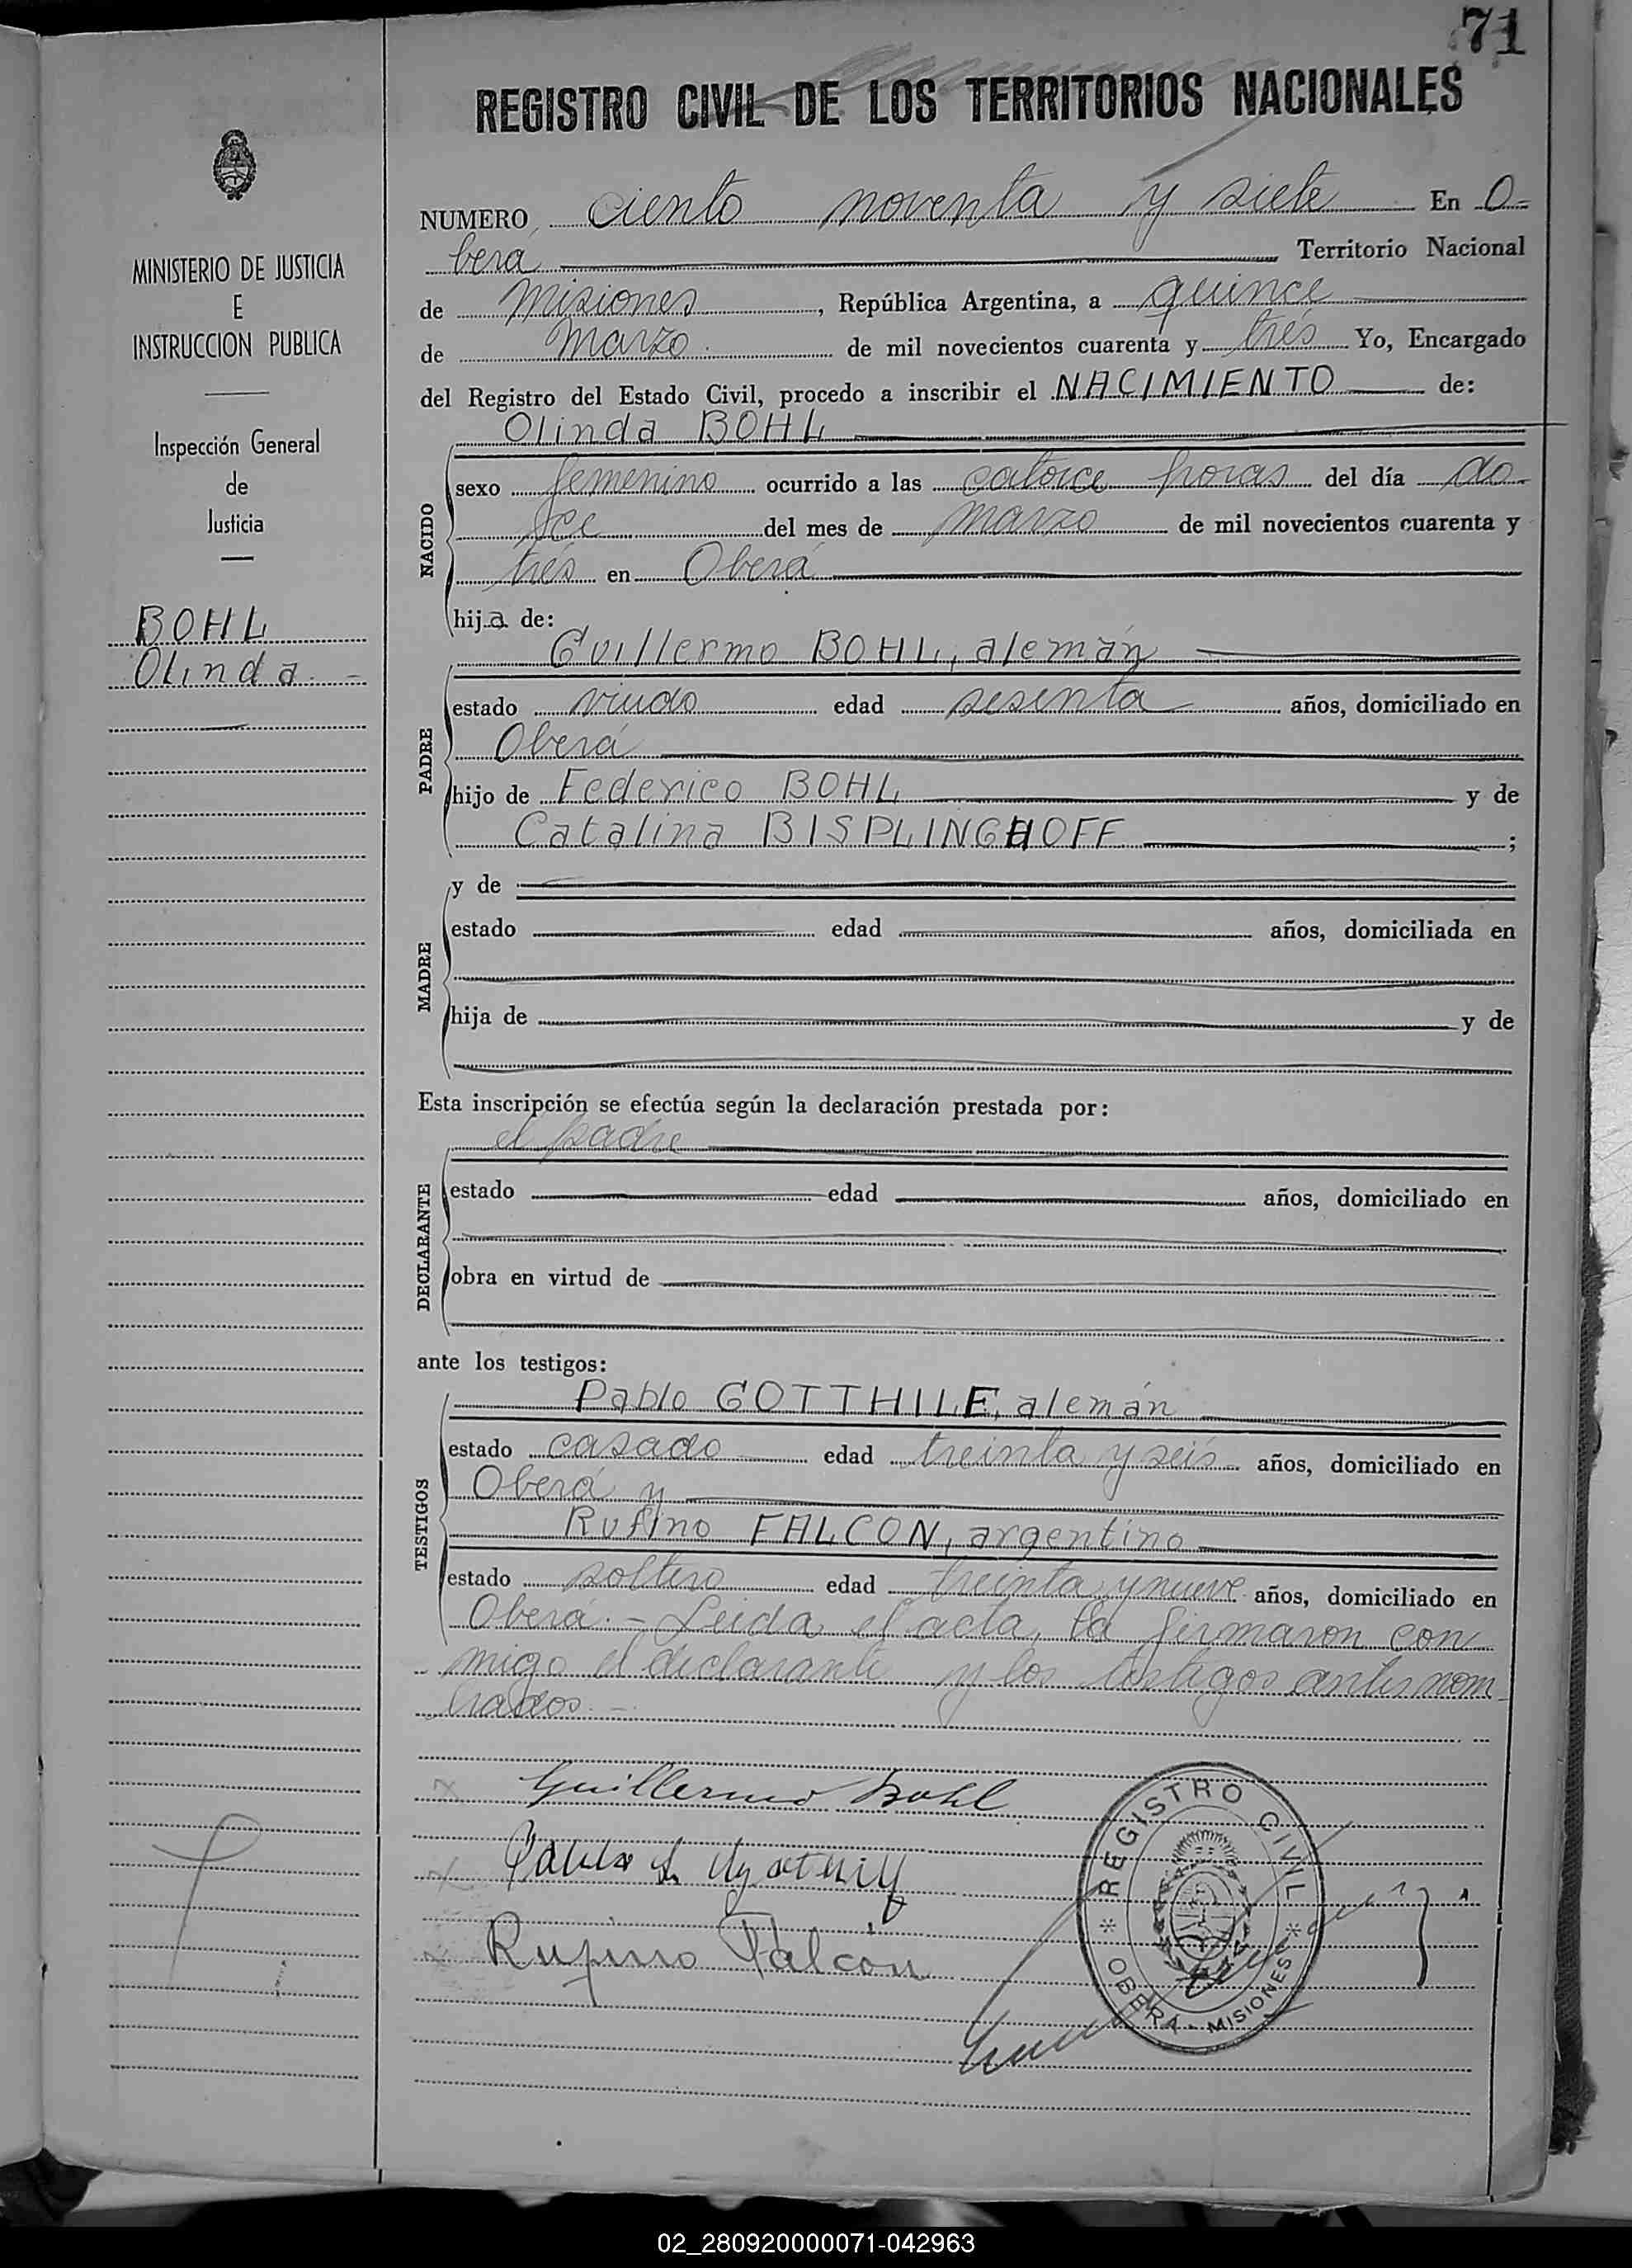 71
REGISTRO CIVIL DE LOS TERRITORIOS NACIONALES
MINISTERIO DE JUSTICIA
E
INSTRUCCION PUBLICA
Inspección General
de
Justicia
BOHL
Olinda
NUMERO ciento noventa y siete En O-
berá Territorio Nacional
de Misiones, República Argentina, a quince
de Marzo de mil novecientos cuarenta y trés Yo, Encargado
del Registro del Estado Civil, procedo a inscribir el NACIMIENTO de:
Olinda BOHL
NACIDO
sexo femenino ocurrido a las catorce horas del día do-
ce del mes de marzo de mil novecientos cuarenta y
trés en Oberá
hija de:
Guillermo BOHL, alemán
PADRE
estado viudo edad sesenta años, domiciliado en
Oberá
hijo de Federico BOHL y de
Catalina BISPLINGHOFF;
MADRE
y de
estado edad años, domiciliada en
hija de y de
Esta inscripción se efectúa según la declaración prestada por:
el padre
DECLARANTE
estado edad años, domiciliado en
obra en virtud de
ante los testigos:
Pablo GOTTHILF, alemán
TESTIGOS
estado casado edad treinta y seis años, domiciliado en
Oberá y
Rufino FALCON, argentino
estado soltero edad treinta y nueve años, domiciliado en
Oberá.- Leida el acta, la firmaron con
migo el declarante y los testigos antes nom
brados.-
Guillermo Bohl
Rufino Falcón
REGISTRO CIVIL
OBERA - MISIONES
02_280920000071-042963